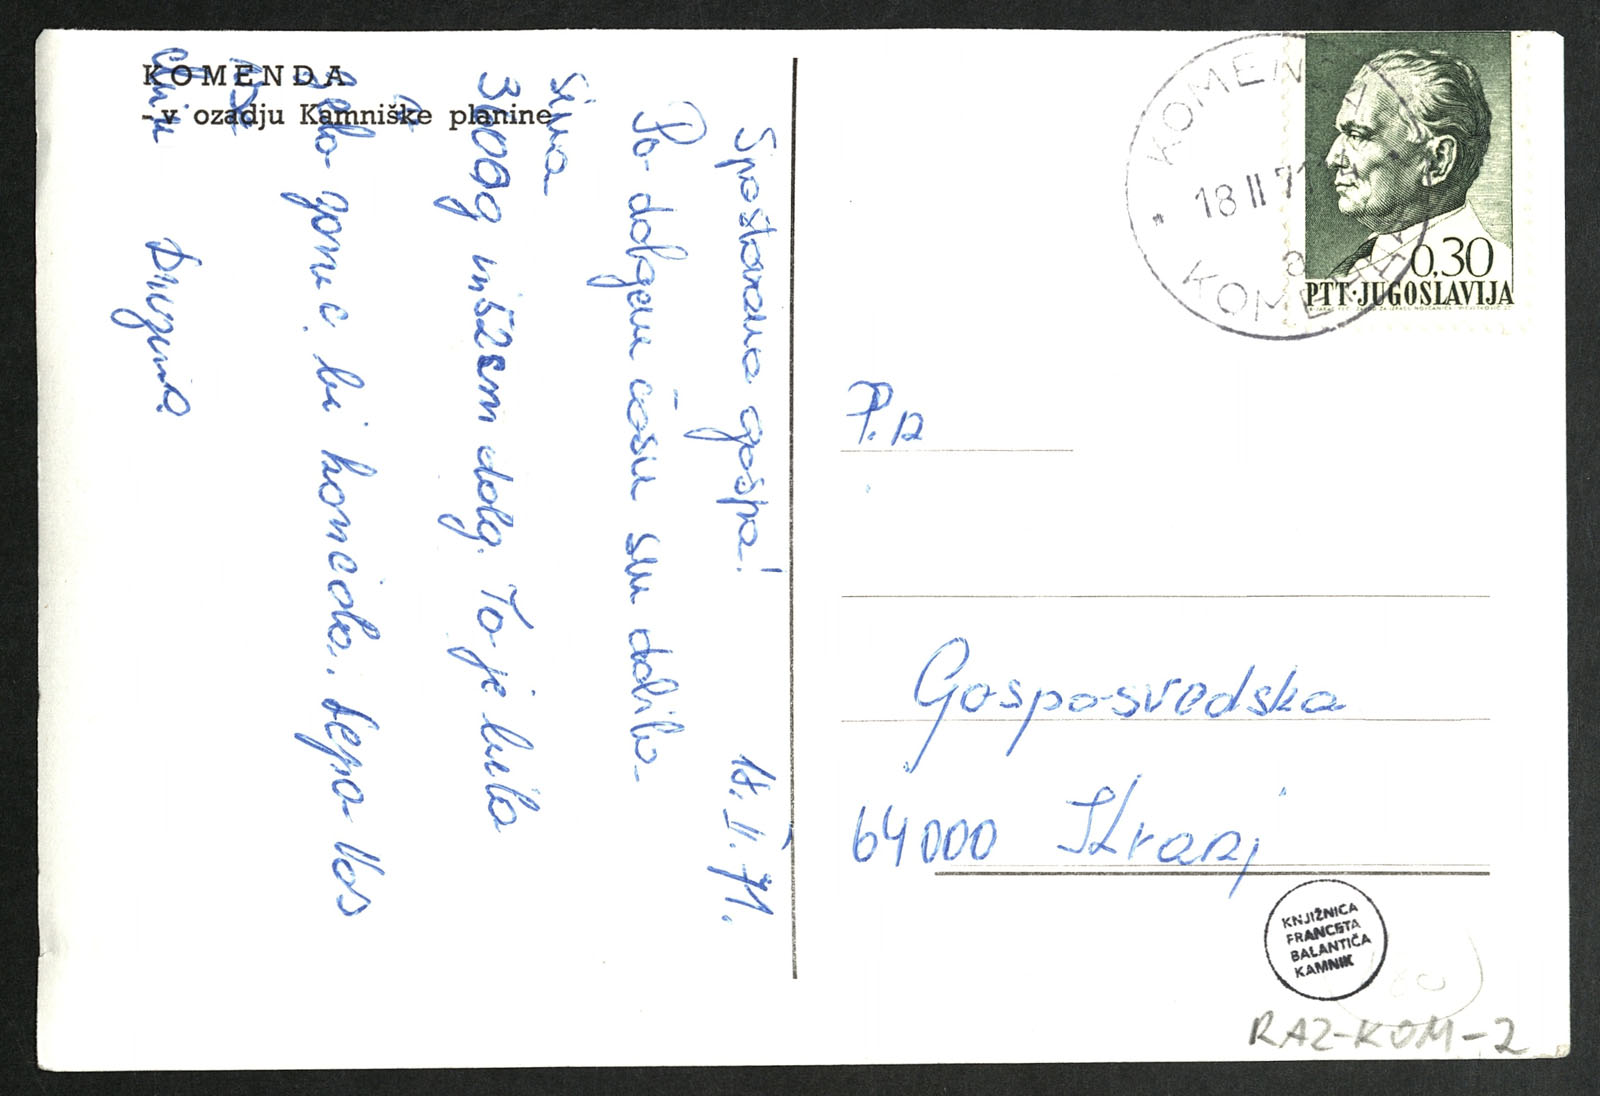 KOMENDA
- v ozadju Kamniške planine
Spoštovana gospa!
18. II. 71.
Po dolgem času sm dobila
sina
3600g in 52cm dolg. To je bila
zelo
gonič bi končala. Lepo Vas
družina
KOMENDA
18 II 71
KOMENDA
0,30
PTT·JUGOSLAVIJA
P. n
Gosposvedska
64000 Kranj
KNJIŽNICA
FRANCETA
BALANTIČA
KAMNIK
60
RAZ-KOM-2